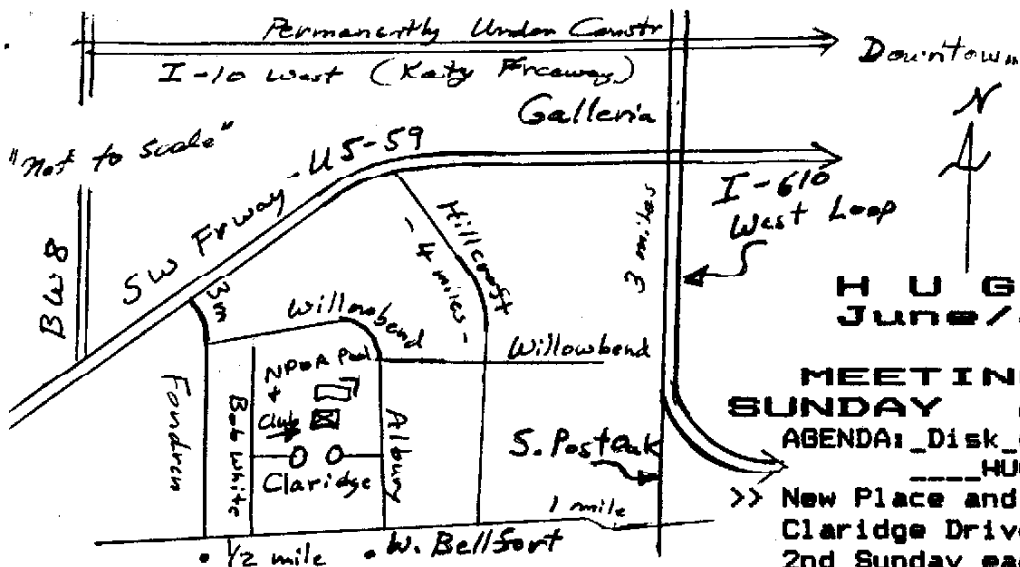 Permanently Under Constr
I-10 West (Katy Freeway)
Downtown
Galleria
N
"Not to scale"
SW Frway - US-59
I-610
West Loop
BW8
3m
Hillcroft
- 4 miles -
3 miles
Willowbend
Willowbend
NPOA Pool
+
Club
Fondren
Bob White
Albury
Claridge
S. Post Oak
1 mile
1/2 mile
W. Bellfort
H U G
June/
MEETIN
SUNDAY
AGENDA:_Disk_
____HU
>> New Place and
Claridge Driv
2nd Sunday ea